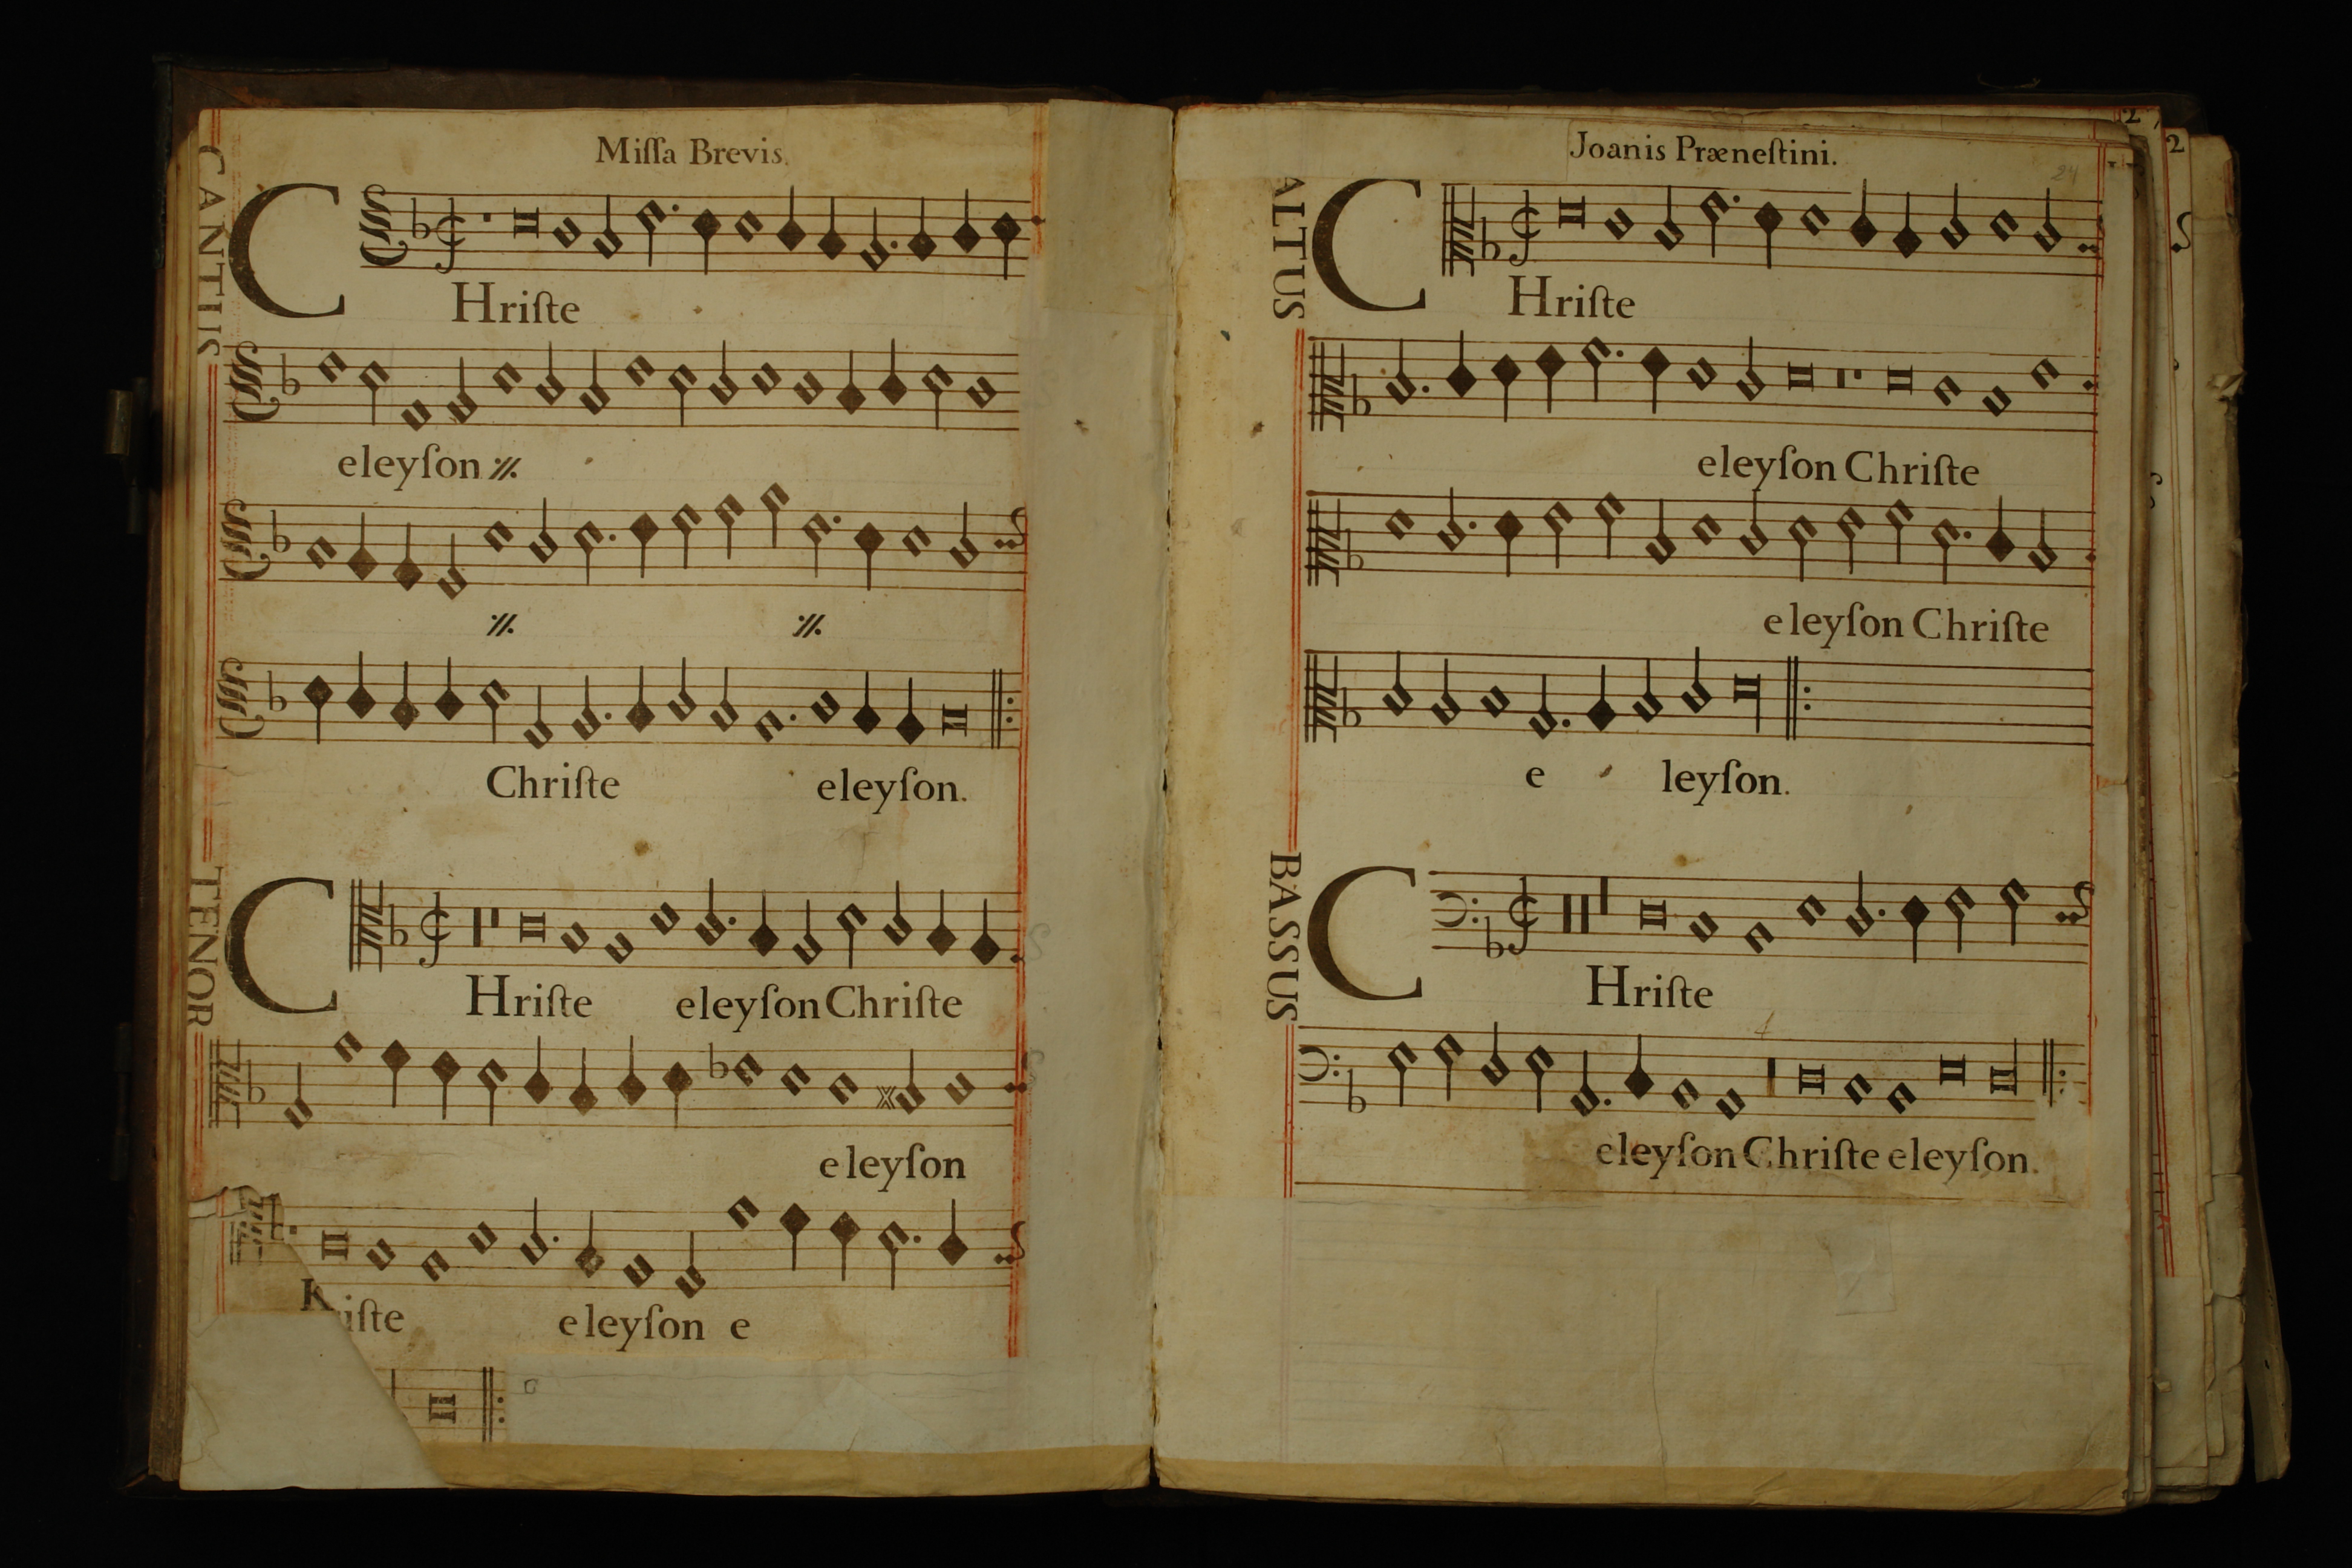 Miſſa Brevis.
CANTUS
CHriſte
eleyſon ·//.
·//. ·//.
Chriſte eleyſon.
TENOR
CHriſte eleyſon Chriſte
eleyſon
iſte eleyſon e
Joanis Præneſtini.
24
2
2
ALTUS
CHriſte
eleyſon Chriſte
eleyſon Chriſte
e leyſon.
BASSUS
CHriſte
eleyſon Chriſte eleyſon.